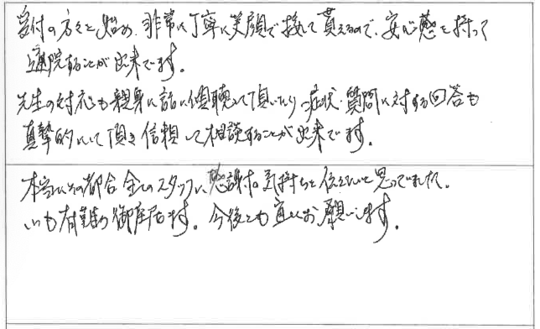 受付の方々を始め、非常に丁寧に笑顔で接して貰えるので、安心感を持って
通院することが出来ています。
先生の対応も親身に話に傾聴して頂いたり、症状、質問に対する回答も
真摯的にして頂き信頼して相談することが出来ています。
本当にその都合全てのスタッフに感謝な気持ちを伝えたいと思ってました。
いつも有難う御座居ます。今後とも宜しくお願いします。